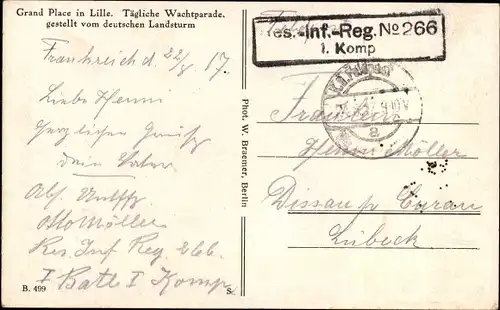 Grand Place in Lille. Tägliche Wachtparade,
gestellt vom deutschen Landsturm
Frankreich d. 22/8 17
Liebe Henni
Herzlichen Gruß
dein Vater
Abs. Untffz
Otto Möller
Res. Inf Reg 266
I Batl I Komp
B. 499
S.
Phot. W. Braemer, Berlin
Res.-Inf.-Reg. № 266
1. Komp
a
Fräulein
Henni Möller
Dissau p Curau
Lübeck